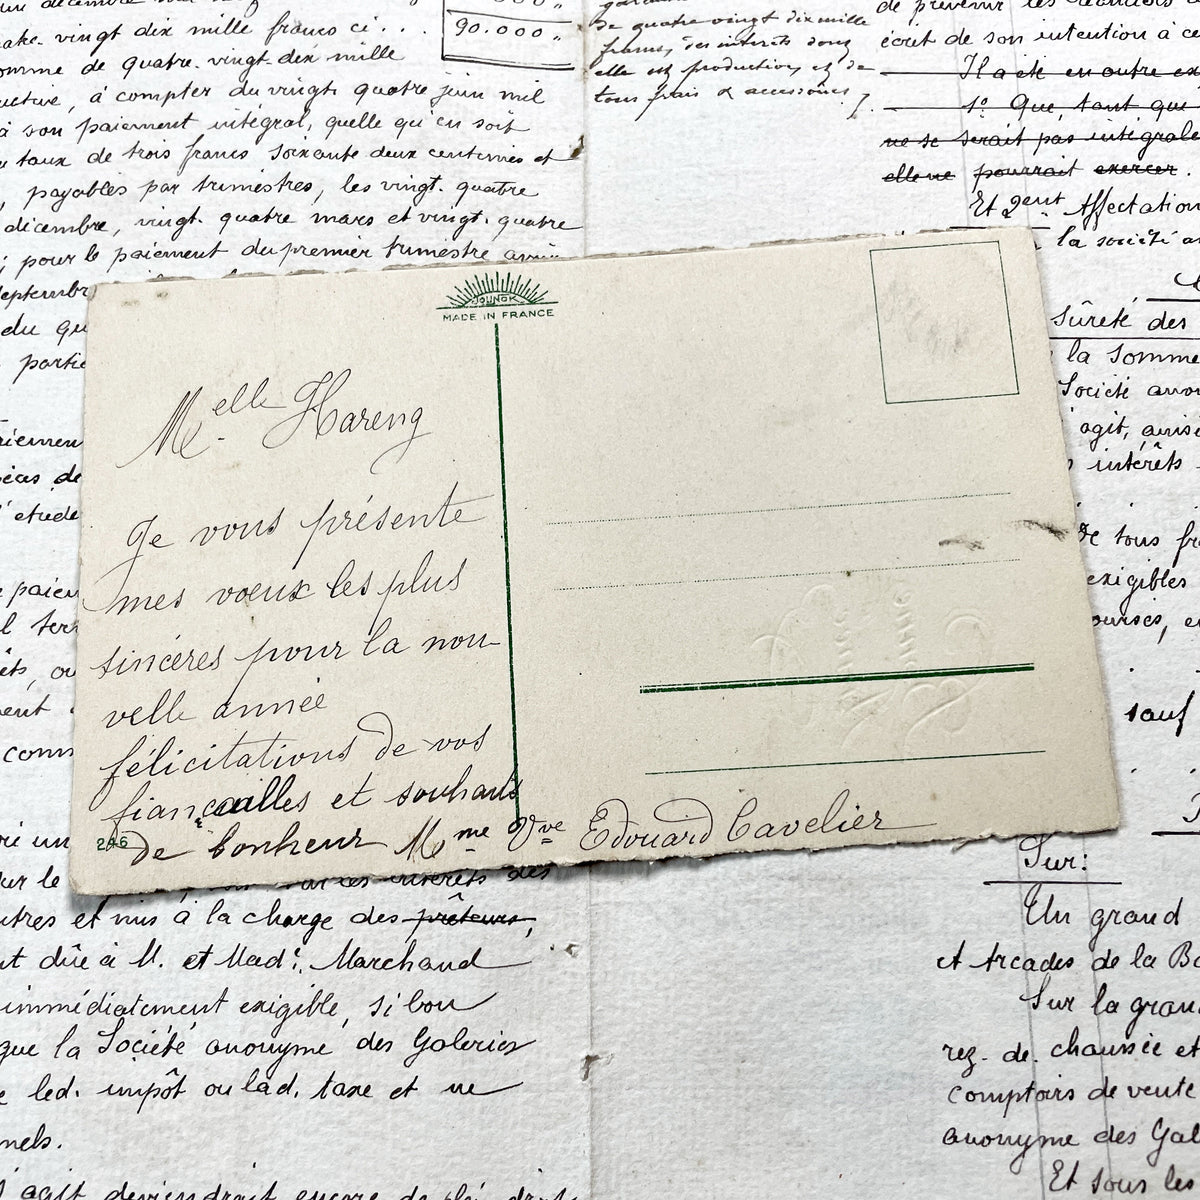 décembre
90.000„
vingt dix mille francs ci...
omme de quatre-vingt-dix mille
à compter du vingt quatre juin mil
à son paiement intégral, quelle qu'en soit
taux de trois francs soixante deux centimes et
payables par trimestres, les vingt-quatre
décembre, vingt-quatre mars et vingt-quatre
pour le paiement du premier trimestre
du
de quatre vingt dix mille
francs, des intérêts dont
elle est productive, et de
tous frais & accessoires
de prévenir les
écrit de son intention à ce
Il a été en outre ex
1º Que, tant que
ne se serait pas intégrale
elle ne pourrait exercer.
Et 2ent Affectation
la société an
Sûreté des
la somme
Société anon
agit, ainsi
intérêts
de tous fr
exigibles
sauf
JOUNOK
MADE IN FRANCE
Melle Hareng
Je vous présente
mes voeux les plus
sincères pour la nou
velle année
félicitations de vos
fiançailles et souhaits
de bonheur Mme Vve Edouard Cavelier
246
Bonne
Année
intérêts des
utres et mis à la charge des prêteurs,
nt dûe à M. et Made. Marchand
immédiatement exigible, si bon
que la Société anonyme des Galeries
led. impôt ou lad. taxe et ne
nels.
agit deviendrait encore de plein droit
Sur:
Un grand
et Arcades de la Bo
Sur la gran
rez-de-chaussée et
comptoirs de vente
anonyme des Gal
Et sous les